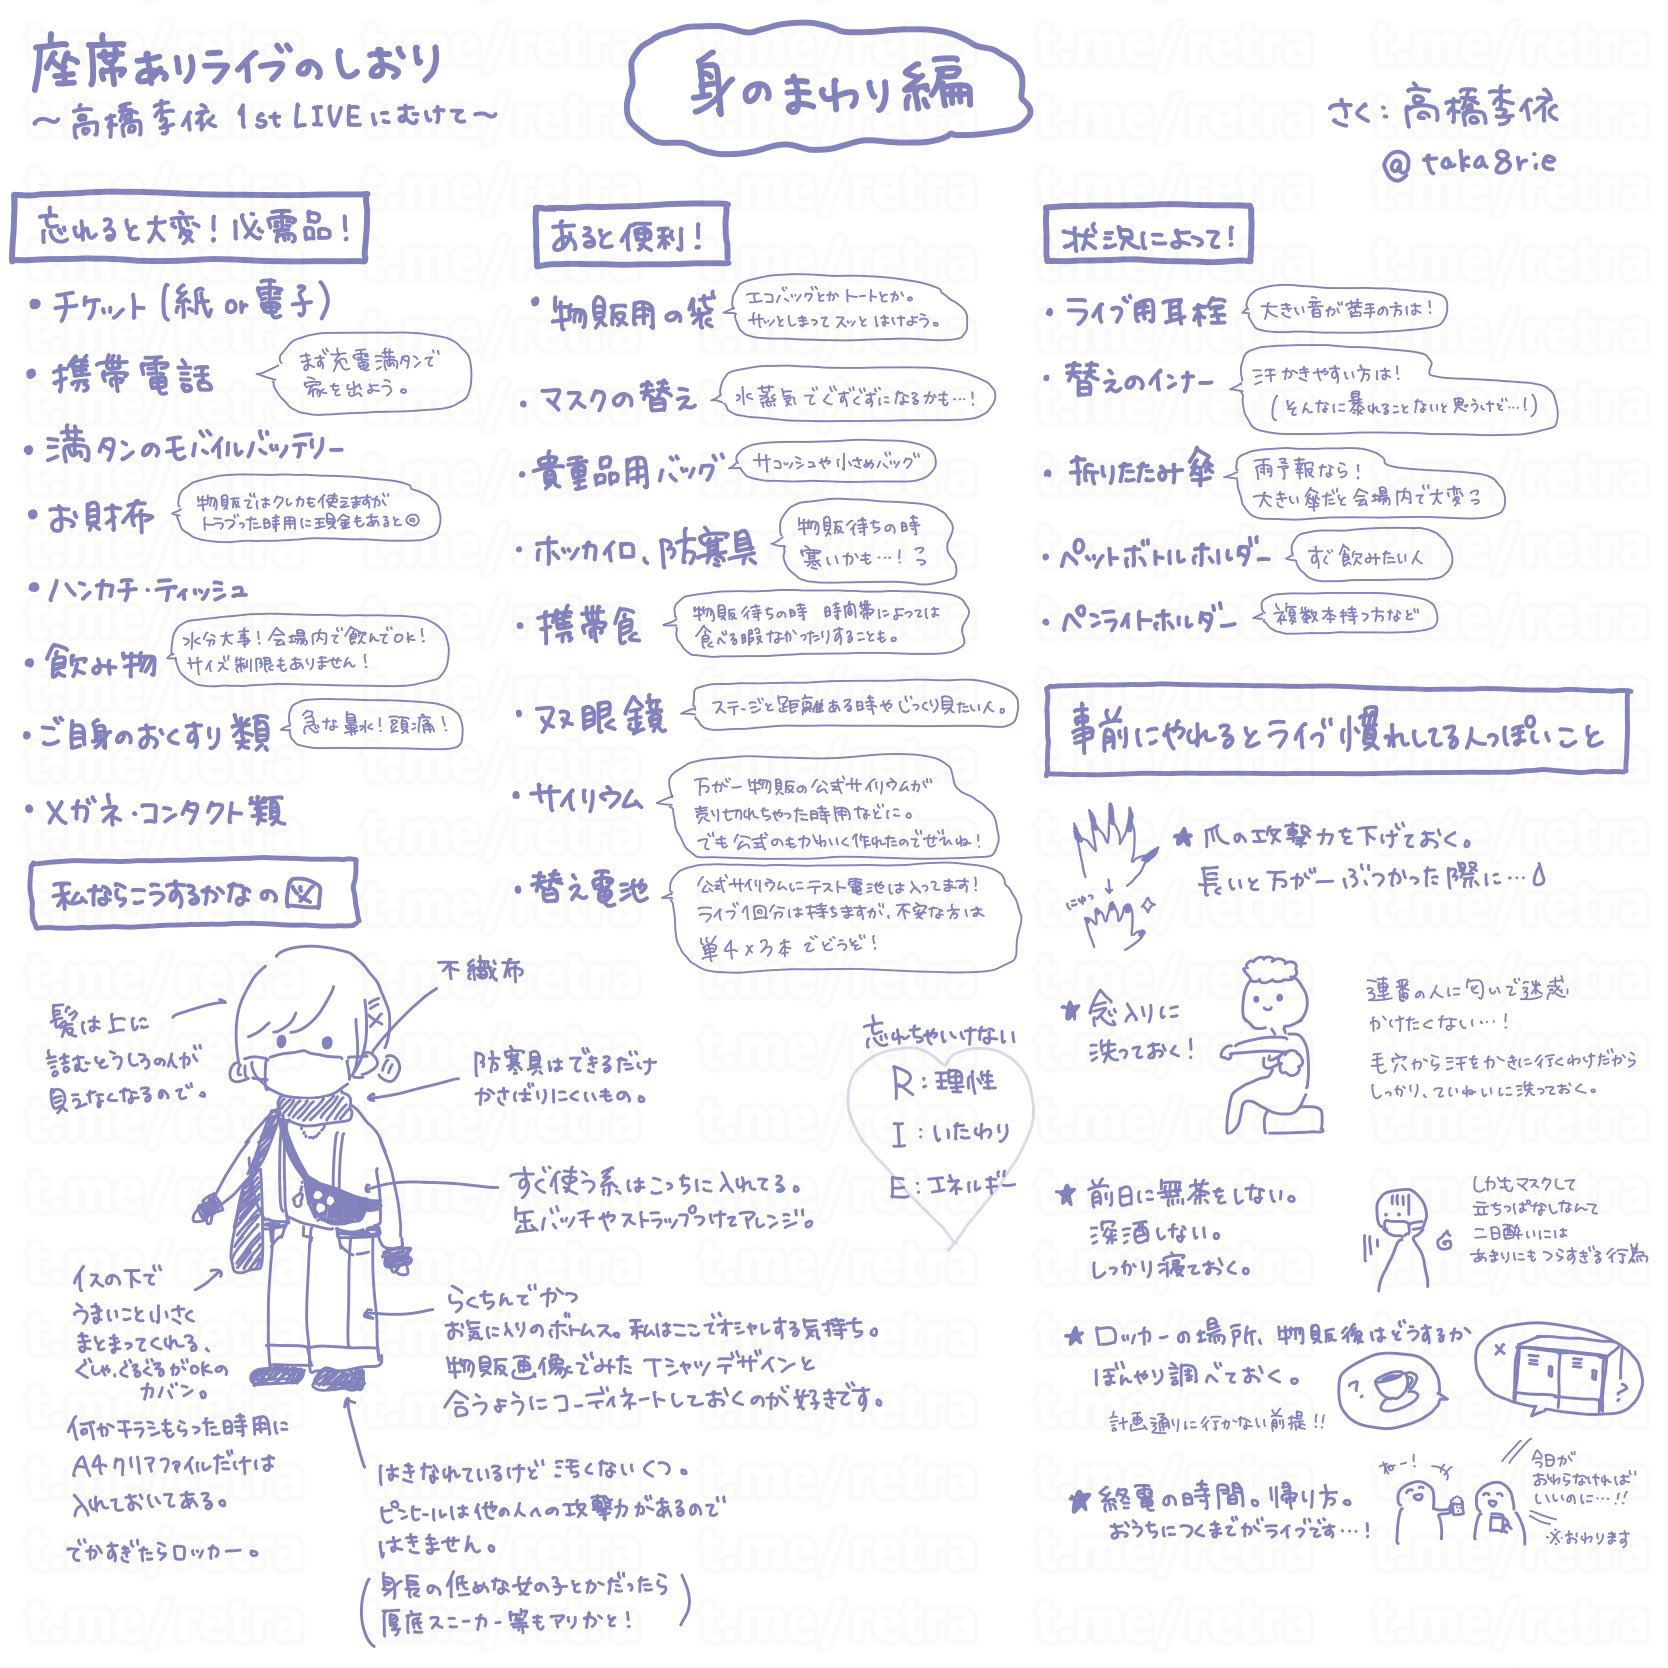 座席ありライブのしおり
～高橋李依 1st LIVEにむけて～
身のまわり編
さく：高橋李依
@taka8rie
忘れると大変！必需品！
・チケット(紙or電子)
・携帯電話
まず充電満タンで
家を出よう。
・満タンのモバイルバッテリー
・お財布
物販ではクレカも使えますが
トラブった時用に現金もあると◎
・ハンカチ・ティッシュ
・飲み物
水分大事！会場内で飲んでOK！
サイズ制限もありません！
・ご自身のおくすり類
急な鼻水！頭痛！
・メガネ・コンタクト類
あると便利！
・物販用の袋
エコバッグとかトートとか。
サッとしまってスッとはけよう。
・マスクの替え
水蒸気でぐずぐずになるかも…！
・貴重品用バッグ
サコッシュや小さめバッグ
・ホッカイロ、防寒具
物販待ちの時
寒いかも…！っ
・携帯食
物販待ちの時 時間帯によっては
食べる暇なかったりすることも。
・双眼鏡
ステージと距離ある時やじっくり見たい人。
・サイリウム
万が一物販の公式サイリウムが
売り切れちゃった時用などに。
でも公式のもかわいく作れたのでぜひね！
・替え電池
公式サイリウムにテスト電池は入ってます！
ライブ1回分は持ちますが、不安な方は
単4×3本でどうぞ！
状況によって！
・ライブ用耳栓
大きい音が苦手の方は！
・替えのインナー
汗かきやすい方は！
(そんなに暴れることないと思うけど…！)
・折りたたみ傘
雨予報なら！
大きい傘だと会場内で大変っ
・ペットボトルホルダー
すぐ飲みたい人
・ペンライトホルダー
複数本持つ方など
事前にやれるとライブ慣れしてる人っぽいこと
★爪の攻撃力を下げておく。
長いと万が一ぶつかった際に…
にゅっ
★念入りに
洗っておく！
連番の人に匂いで迷惑
かけたくない…！
毛穴から汗をかきに行くわけだから
しっかり、ていねいに洗っておく。
★前日に無茶をしない。
深酒しない。
しっかり寝ておく。
しかもマスクして
立ちっぱなしなんて
二日酔いには
あまりにもつらすぎる行為
★ロッカーの場所、物販後はどうするか
ぼんやり調べておく。
計画通りに行かない前提!!
?
★終電の時間。帰り方。
おうちにつくまでがライブです…！
ねー！
今日が
おわらなければ
いいのに…!!
※おわります
私ならこうするかなの図
不織布
髪は上に
詰むとうしろの人が
見えなくなるので。
防寒具はできるだけ
かさばりにくいもの。
すぐ使う系はこっちに入れてる。
缶バッチやストラップつけてアレンジ。
イスの下で
うまいこと小さく
まとまってくれる、
ぐしゃ、ぐるぐるがOKの
カバン。
何かチラシもらった時用に
A4クリアファイルだけは
入れておいてある。
でかすぎたらロッカー。
らくちんでかつ
お気に入りのボトムス。私はここでオシャレする気持ち。
物販画像でみたTシャツデザインと
合うようにコーディネートしておくのが好きです。
はきなれているけど汚くないくつ。
ピンヒールは他の人への攻撃力があるので
はきません。
(身長の低めな女の子とかだったら
厚底スニーカー等もアリかと！)
忘れちゃいけない
R：理性
I：いたわり
E：エネルギー
t.me/retra